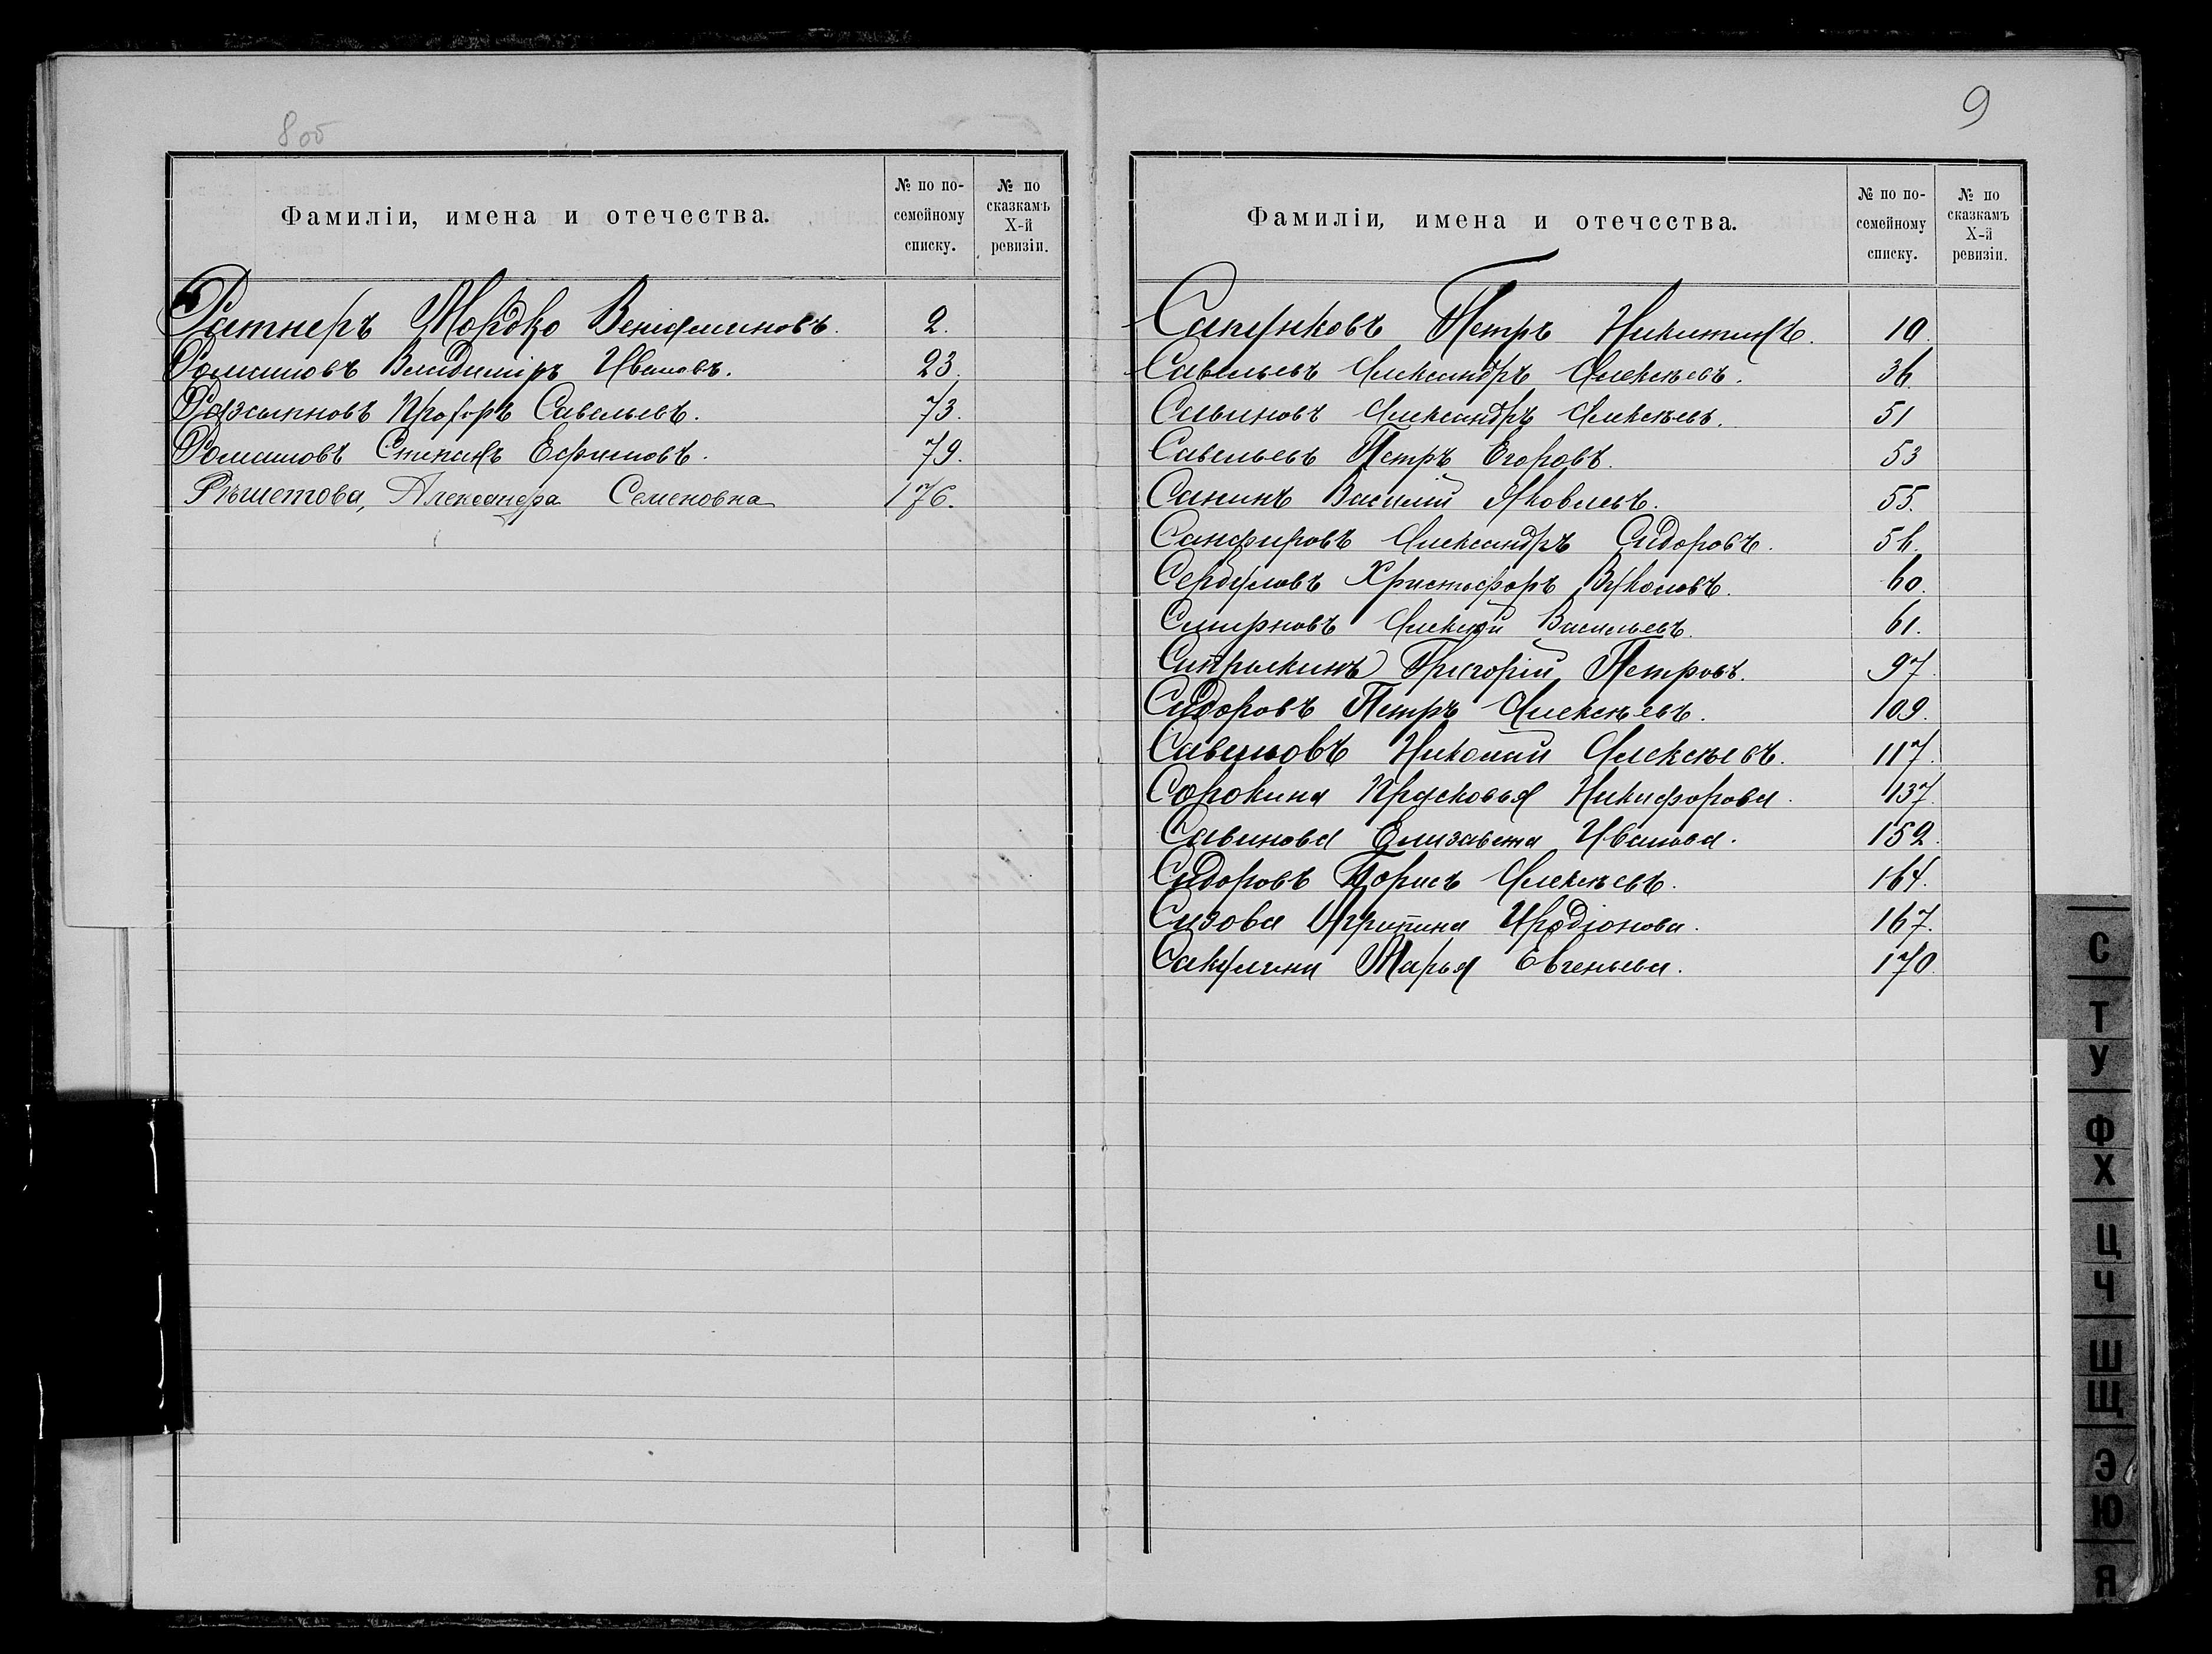 8 об
Фамиліи, имена и отечества.
№ по по-
семейному
списку.
№ по
сказкамъ
X-й
ревизіи.
Ратнеръ Мордко Веніаминовъ. 2.
Романовъ Владиміръ Ивановъ. 23.
Прохоръ Савельевъ. 73.
Романовъ Степанъ Ефимовъ. 79.
Рѣшетова, Александра Семеновна 176.
9
Фамиліи, имена и отечества.
№ по по-
семейному
списку.
№ по
сказкамъ
X-й
ревизіи.
Сапунковъ Петръ Никитинъ. 10.
Савельевъ Александръ Алексѣевъ. 36.
Савиновъ Александръ Алексѣевъ. 51
Савельевъ Петръ Егоровъ. 53
Санинъ Василій Яковлевъ. 55.
Санфировъ Александръ Сидоровъ. 56.
Христофоръ Вуколовъ. 60.
Смирновъ Алексѣй Васильевъ. 61.
Григорій Петровъ. 97.
Сидоровъ Петръ Алексѣевъ. 109.
Савиновъ Николай Алексѣевъ. 117.
Сорокина Прасковья Никифорова. 137.
Савинова Елизавета Иванова. 152.
Сидоровъ Борисъ Алексѣевъ. 164.
Сизова Агрипина Иродіонова. 167.
Сакулина Марья Евгеньева. 170.
С
Т
У
Ф
Х
Ц
Ч
Ш
Щ
Э
Ю
Я